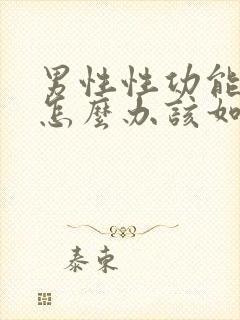 男性性功能
怎麼办該如
泰東